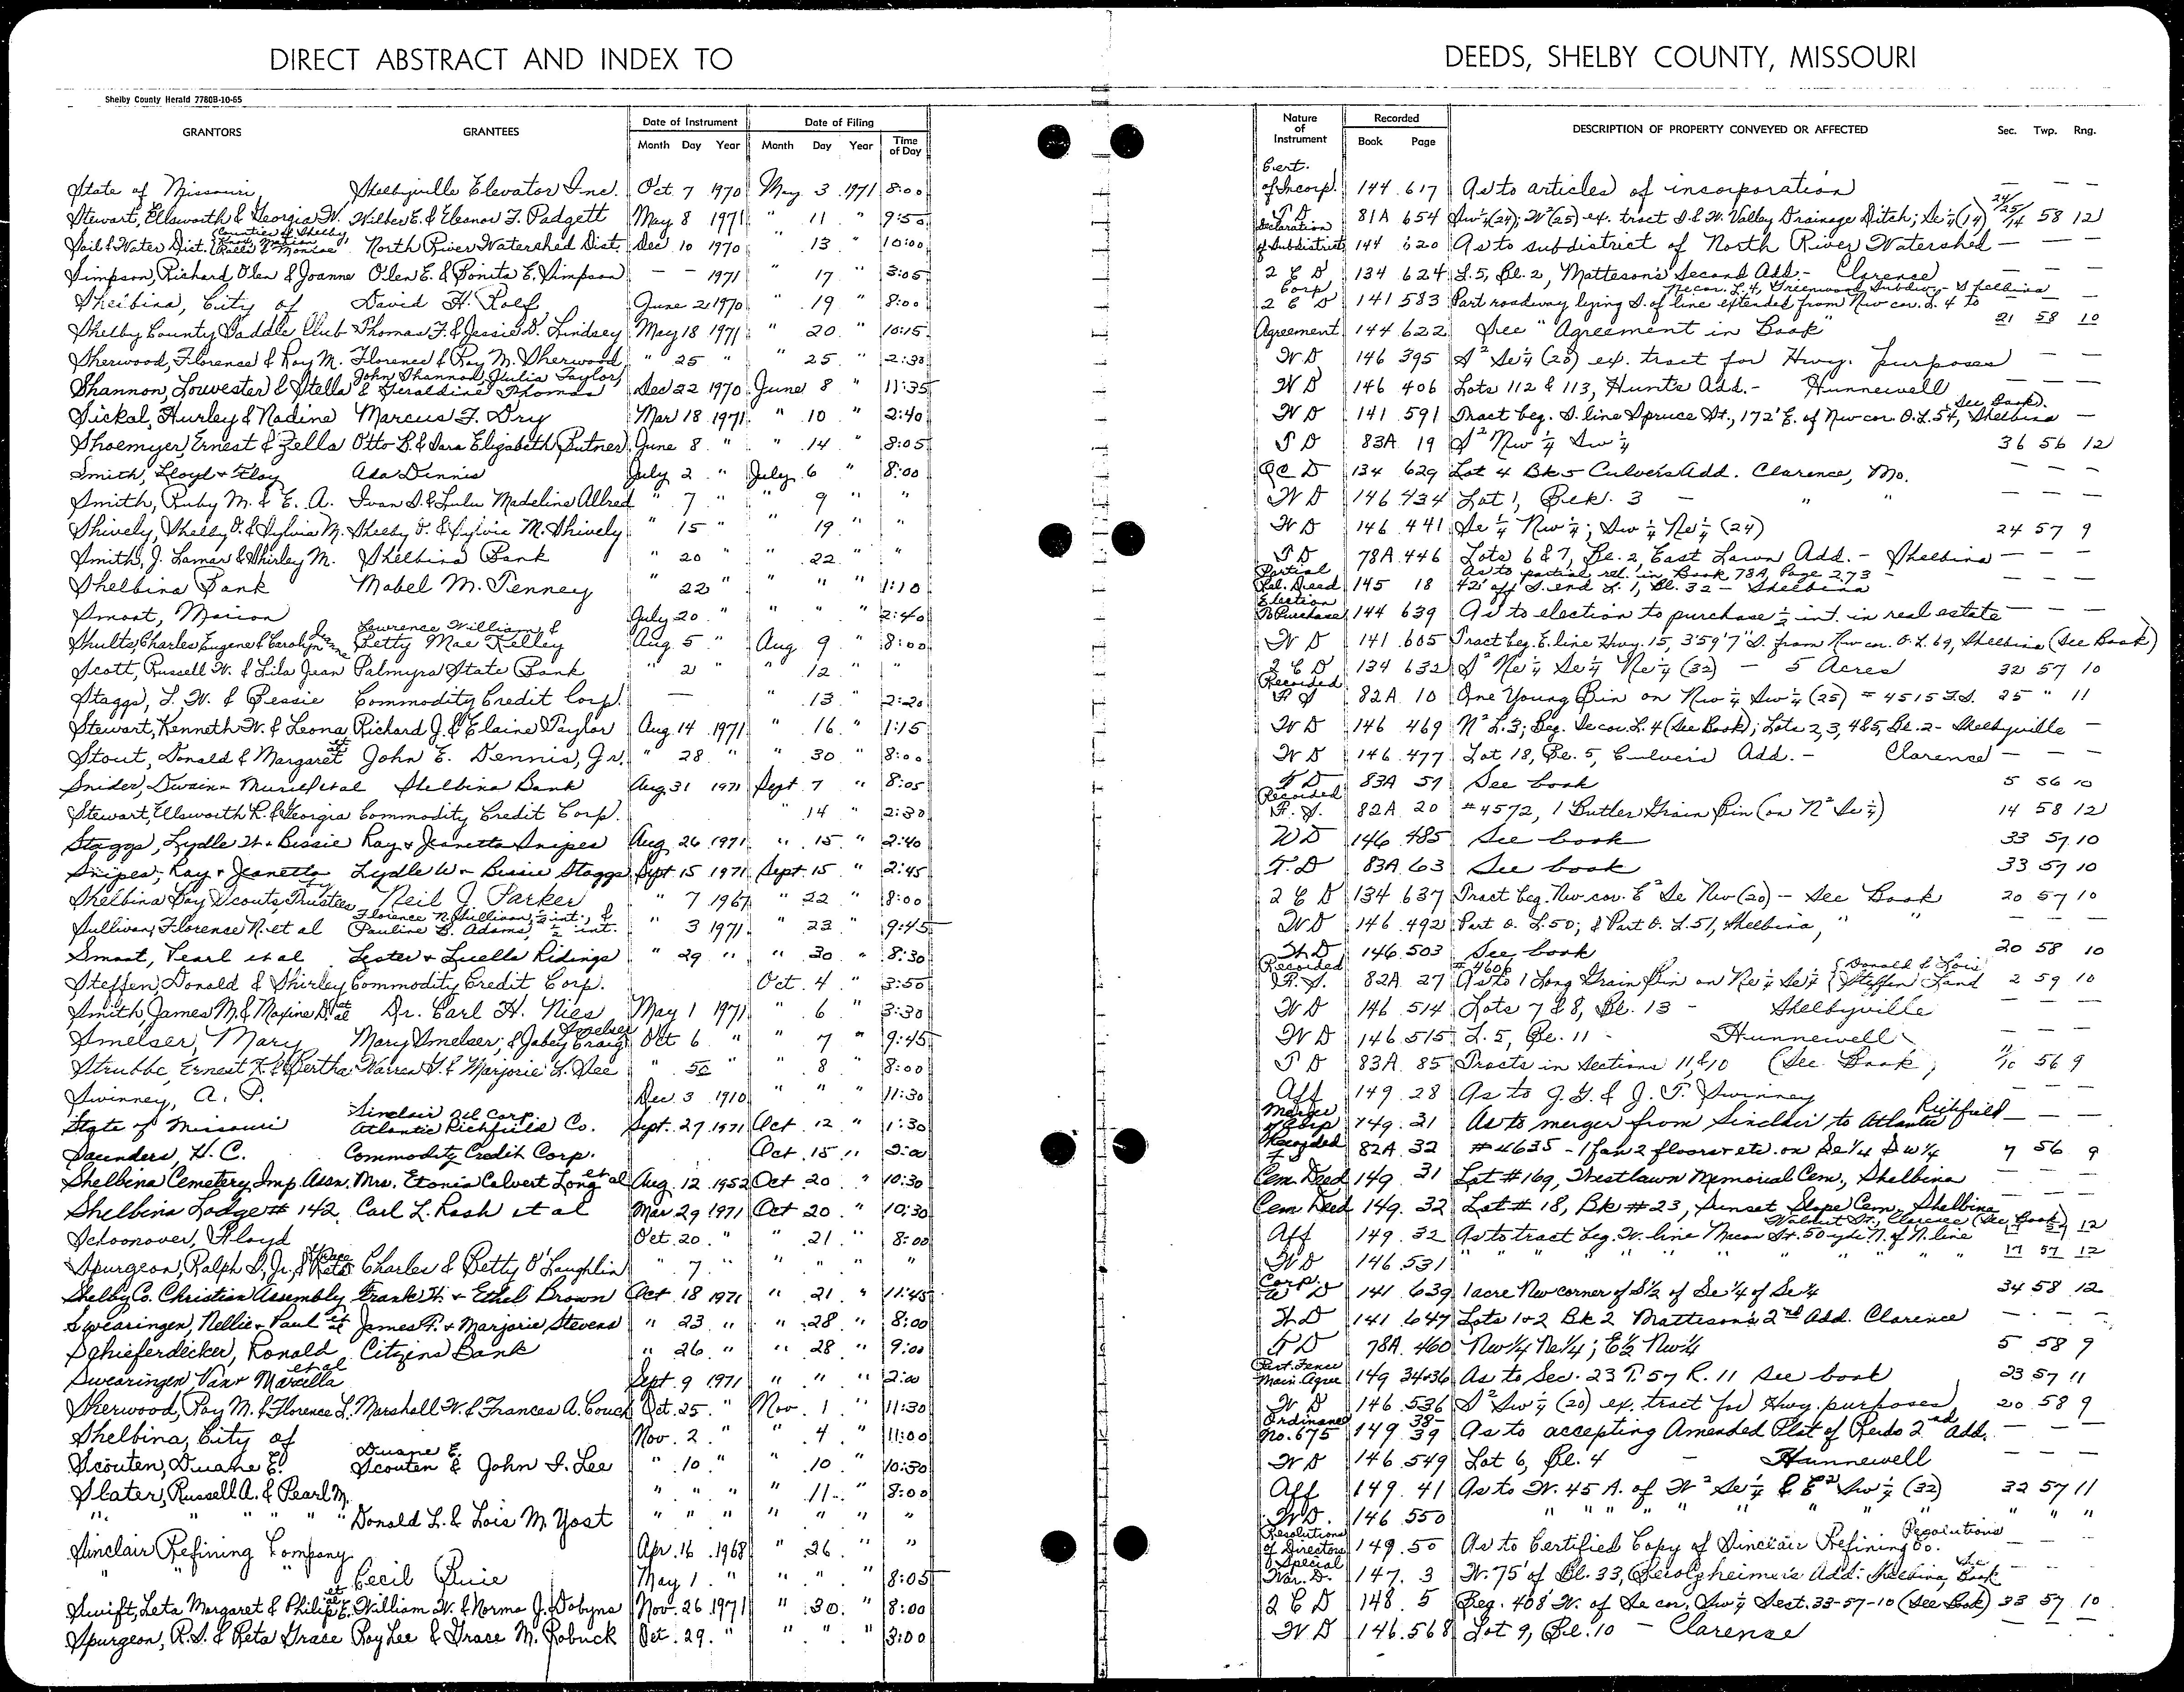 DIRECT ABSTRACT AND INDEX TO
DEEDS, SHELBY COUNTY, MISSOURI
Shelby County Herald 7780B-10-65
GRANTORS GRANTEES Date of Instrument Month Day Year Date of Filing Month Day Year Time of Day
Nature of Instrument Recorded Book Page DESCRIPTION OF PROPERTY CONVEYED OR AFFECTED Sec. Twp. Rng.
State of Missouri Shelbyville Elevator Inc. Oct. 7 1970 May 3 1971 8:00 Cert. of Incorp. 144 617 As to articles of incorporation — — —
Stewart, Ellsworth & Georgia W. Wilber E. & Eleanor F. Padgett May 8 1971 " 11 " 9:50 T D 81A 654 Sw¼(24); W²(25) ex. tract S. & W. Valley Drainage Ditch; Se¼(14) 24/25/14 58 12
Soil & Water Dist. (Counties of Shelby, Knox, Marion, Ralls & Monroe) North River Watershed Dist. Dec 10 1970 " 13 " 10:00 Declaration of Subdistrict 144 620 As to subdistrict of North River Watershed — — —
Simpson, Richard Olen & Joanne Olen E. & Bonita E. Simpson — — 1971 " 17 " 3:05 2 C D 134 624 L. 5, Bl. 2, Matteson's Second Add. - Clarence — — —
Shelbina, City of David H. Roef June 2 1970 " 19 " 8:00 Corp 2 C D 141 583 Part roadway lying S. of line extended from Nw cor. L. 4 to Ne cor. L. 4, Greenwood Subdiv. - Shelbina — — —
Shelby County Saddle Club Thomas F. & Jessie D. Lindsey May 18 1971 " 20 " 10:15 Agreement 144 622 See "Agreement in Book" 21 58 10
Sherwood, Florence & Roy M. Florence & Roy M. Sherwood " 25 " " 25 " 2:30 W D 146 395 S² Se¼ (20) ex. tract for Hwy. purposes — —
Shannon, Louvester & Stella John Shannon, Julia Taylor, & Geraldine Thomas Dec 22 1970 June 8 " 11:35 W D 146 406 Lots 112 & 113, Hunt's Add. - Hunnewell — —
Sickal, Hurley & Nadine Marcus F. Dry Mar 18 1971 " 10 " 2:40 W D 141 591 Tract beg. S. line Spruce St., 172' E. of Nw cor. O. L. 54, Shelbina (See Book) —
Shoemyer, Ernest & Zella Otto B. & Sara Elizabeth Putner June 8 " " 14 " 8:05 T D 83A 19 S² Nw¼ Sw¼ 36 56 12
Smith, Lloyd & Floy Ada Dennis July 2 " July 6 " 8:00 QC D 134 629 Lot 4 Bk 5 Culvers Add. Clarence, Mo. — — —
Smith, Ruby M. & E. A. Ivan S. & Lulu Madeline Allred " 7 " " 9 " " W D 146 434 Lot 1, Blk. 3 — " " — — —
Shively, Shelby O. & Sylvia M. Shelby O. & Sylvia M. Shively " 15 " " 19 " " W D 146 441 Se¼ Nw¼; Sw¼ Ne¼ (24) 24 57 9
Smith, J. Lamar & Shirley M. Shelbina Bank " 20 " 22 " T D 78A 446 Lots 6 & 7, Bl. 2, East Lawn Add. - Shelbina — — —
Shelbina Bank Mabel M. Tenney " 22 " " " " 1:10 Partial Rel. Deed 145 18 As to partial rel. in Book 78A, Page 273 - 42' off S. end L. 1, Bl. 32 - Shelbina — — —
Smoot, Marion July 20 " " " " 2:40 Election To Purchase 144 639 As to election to purchase ½ int. in real estate — — —
Shults, Charles Eugene & Carolyn Lawrence William & Betty Mae Kelley Aug. 5 " Aug. 9 " 8:00 W D 141 605 Tract beg. E. line Hwy. 15, 359'7" S. from Nw cor. O. L. 69, Shelbina (See Book)
Scott, Russell W. & Lila Jean Palmyra State Bank " 2 " " 12 " " 2 C D 134 632 S² Ne¼ Se¼ Ne¼ (32) — 5 Acres 32 57 10
Staggs, L. W. & Bessie Commodity Credit Corp. — " 13 " 2:20 Recorded F S 82A 10 One Young Bin on Nw¼ Sw¼ (25) # 4515 F.S. 25 " 11
Stewart, Kenneth W. & Leona Richard J. & Elaine Taylor Aug 14 1971 " 16 " 1:15 W D 146 469 N² L. 3; Beg. Se cor. L. 4 (See Book); Lots 2, 3, 4 & 5, Bl. 2 - Shelbyville —
Stout, Donald & Margaret et al John E. Dennis, Jr. " 28 " " 30 " 8:00 W D 146 477 Lot 18, Bl. 5, Culver's Add. - Clarence — — —
Snider, Dwain & Muriel et al Shelbina Bank Aug 31 1971 Sept. 7 " 8:05 T D 83A 57 See book 5 56 10
Stewart, Ellsworth R. & Georgia Commodity Credit Corp. " 14 " 2:30 Recorded F. S. 82A 20 #4572, 1 Butler Grain Bin (on N² Se¼) 14 58 12
Staggs, Lydle W. & Bessie Ray & Jeanetta Snipes Aug 26 1971 " 15 " 2:40 W D 146 485 See book 33 57 10
Snipes, Ray & Jeanetta Lydle W. & Bessie Staggs Sept 15 1971 Sept. 15 " 2:45 T. D 83A 63 See book 33 57 10
Shelbina Boy Scouts, by Trustees Neil J. Parker " 7 1967 " 22 " 8:00 2 C D 134 637 Tract beg. Nw cor. E² Se Nw (20) - See Book 20 57 10
Sullivan, Florence N. et al Florence N. Sullivan, ½ int., & Pauline B. Adams, ½ int. " 3 1971 " 23 " 9:45 W D 146 492 Part O. L. 50; & Part O. L. 51, Shelbina, " " — — —
Smoot, Pearl et al Lester & Luella Ridings " 29 " " 30 " 8:30 W D 146 503 See book 20 58 10
Steffen, Donald & Shirley Commodity Credit Corp. Oct. 4 " 3:50 Recorded F. S. 82A 27 #4606 As to 1 Long Grain Bin on Ne¼ Se¼ (Donald & Lois Steffen Land 2 59 10
Smith, James M. & Maxine D. et al Dr. Carl H. Nies May 1 1971 " 6 " 3:30 W D 146 514 Lots 7 & 8, Bl. 13 - Shelbyville — — —
Smelser, Mary Mary Smelser; & Jabey Smelser Craig Oct 6 " " 7 " 9:45 W D 146 515 L. 5, Bl. 11 - Hunnewell — — —
Strubbe, Ernest F. & Bertha Warren G. & Marjorie L. See " 5 " " 8 " 8:00 T D 83A 85 Tracts in Sections 11 & 10 (See Book) 11/10 56 9
Swinney, A. P. Dec. 3 1910 " " " 11:30 Aff 149 28 As to J. G. & J. T. Swinney — — —
State of Missouri Sinclair Oil Corp. Atlantic Richfield Co. Sept. 27 1971 Oct. 12 " 1:30 Merger of Corp 149 31 As to merger from Sinclair to Atlantic Richfield — — —
Saunders, H. C. Commodity Credit Corp. Oct. 15 " 2:00 Recorded F S 82A 32 #4635 - 1 fan 2 floors etc. on Se 1/4 Sw 1/4 7 56 9
Shelbina Cemetery Imp. Assn. Mrs. Etonia Calvert Long et al Aug. 12 1952 Oct 20 " 10:30 Cem. Deed 149 31 Lot #169, Shestlawn Memorial Cem., Shelbina — — —
Shelbina Lodge # 142 Carl L. Rash et al Mar 29 1971 Oct 20 " 10:30 Cem Deed 149 32 Lot # 18, Bk # 23, Sunset Slope Cem. Shelbina — — —
Schoonover, Floyd Oct. 20 " " 21 " 8:00 Aff 149 32 As to tract beg. W. line Macon St. 50 yds. N. of N. line Walnut St., Clarence (See Book) 17 57 12
Spurgeon, Ralph S., Jr., & Reta Grace Charles & Betty O'Laughlin " 7 " " " " " W D 146 531 " " " " " " 17 57 12
Shelby Co. Christian Assembly Frank W. & Ethel Brown Oct 18 1971 " 21 " 11:45 Corp W D 141 639 1 acre Nw corner of S 1/2 of Se 1/4 of Se 1/4 34 58 12
Swearingen, Nellie & Paul et al James F. & Marjorie Stevens " 23 " " 28 " 8:00 W D 141 647 Lots 1 & 2 Bk 2 Mattison's 2nd Add. Clarence — — —
Schieferdecker, Ronald Citizens Bank " 26 " " 28 " 9:00 T D 78A 460 Nw 1/4 Ne 1/4; E 1/2 Nw 1/4 5 58 9
Swearingen Van & Marcella et al Sept. 9 1971 " " " 2:00 Part. Fence Main. Agree 149 34-36 As to Sec. 23 T. 57 R. 11 See book 23 57 11
Sherwood, Roy M. & Florence L. Marshall W. & Frances A. Couch Oct. 25 " Nov. 1 " 11:30 W D 146 536 S² Sw¼ (20) ex. tract for Hwy. purposes 20 58 9
Shelbina, City of Nov. 2 " " 4 " 11:00 Ordinance No. 675 149 38-39 As to accepting Amended Plat of Reids 2nd Add. — — —
Scouten, Duane E. Duane E. Scouten & John I. Lee " 10 " " 10 " 10:30 W D 146 549 Lot 6, Bl. 4 - Hunnewell — — —
Slater, Russell A. & Pearl M. " " " " 11 " 8:00 Aff 149 41 As to W. 45 A. of W² Se¼ & E² Sw¼ (32) 32 57 11
" " " " " Donald L. & Lois M. Yost " " " " " " " W D. 146 550 " " " " " " " " " "
Sinclair Refining Company Apr. 16 1968 " 26 " " Resolutions of Directors 149 50 As to Certified Copy of Sinclair Refining Co. Resolutions — — —
" " " Cecil Buie May 1 " " " " 8:05 Special War. D. 147 3 W. 75' of Bl. 33, Gerolzheimer's Add. Shelbina, See Book — —
Swift, Leta Margaret & Philip E. et al William W. & Norma J. Dobyns Nov. 26 1971 " 30 " 8:00 2 C D 148 5 Beg. 408' W. of Se cor. Sw¼ Sect. 33-57-10 (See Book) 33 57 10
Spurgeon, R. S. & Reta Grace Roy Lee & Grace M. Robuck Oct. 29 " " " " 3:00 W D 146 568 Lot 9, Bl. 10 - Clarence — —